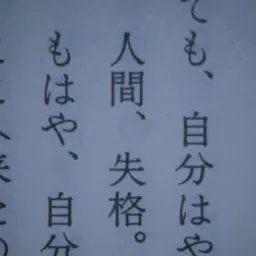 ても、自分はや
人間、失格。
もはや、自分